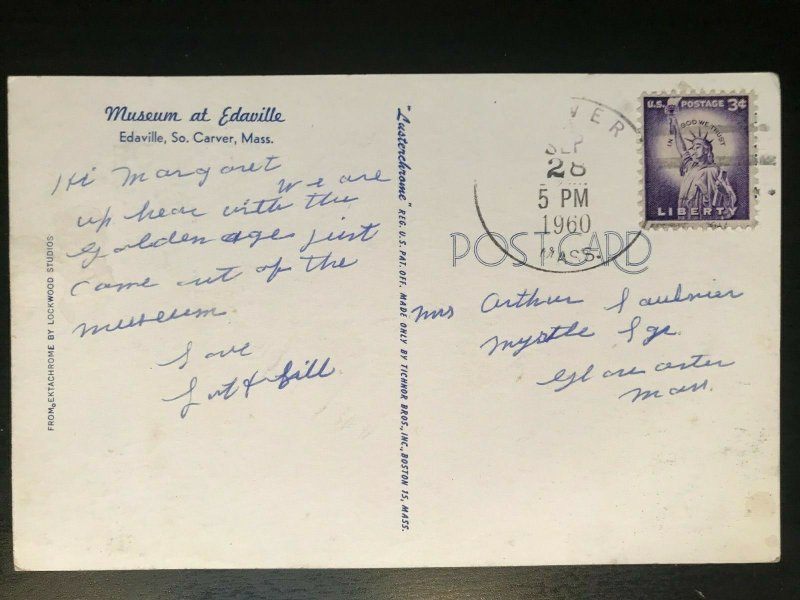 Museum at Edaville
Edaville, So. Carver, Mass.
Hi Margaret
We are
up hear with the
golden ages just
came out of the
museum
Love
& Bill
FROM EKTACHROME BY LOCKWOOD STUDIOS
"Lusterchrome" REG. U.S. PAT. OFF. MADE ONLY BY TICHNOR BROS., INC., BOSTON 15, MASS.
VER
SEP
28
5 PM
1960
MASS.
U.S. POSTAGE 3¢
IN GOD WE TRUST
LIBERTY
POST CARD
Mrs Arthur Saulnier
Myrtle Sqr.
Gloucester
Mass.